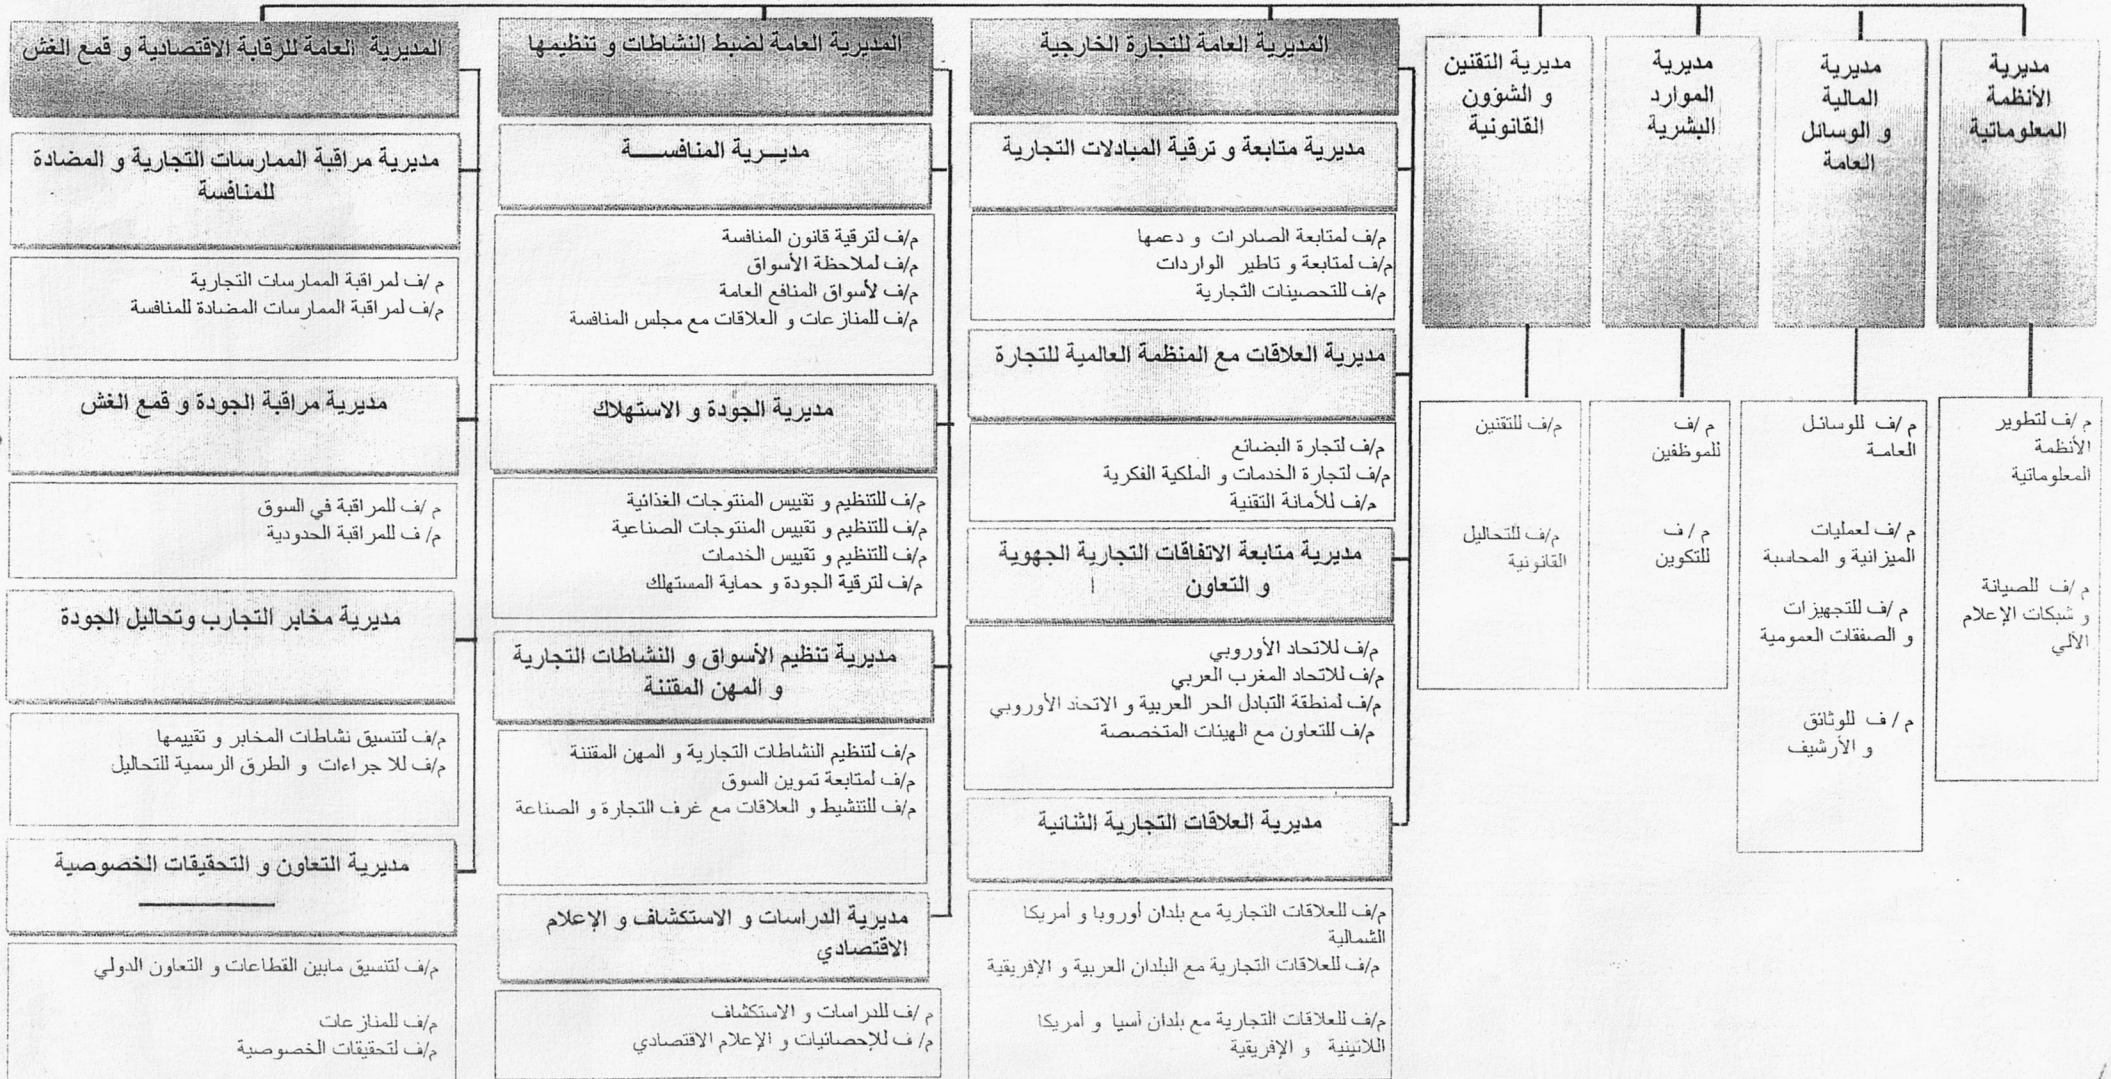 مديرية
الأنظمة
المعلوماتية
م/ف لتطوير
الأنظمة
المعلوماتية
م/ف للصيانة
و شبكات الإعلام
الألي
مديرية
المالية
و الوسائل
العامة
م/ف للوسائل
العامة
م/ف لعمليات
الميزانية و المحاسبة
م/ف للتجهيزات
و الصفقات العمومية
م/ف للوثائق
و الأرشيف
مديرية
الموارد
البشرية
م/ف
للموظفين
م/ف
للتكوين
مديرية التقنين
و الشؤون
القانونية
م/ف للتقنين
م/ف للتحاليل
القانونية
المديرية العامة للتجارة الخارجية
مديرية متابعة و ترقية المبادلات التجارية
م/ف لمتابعة الصادرات و دعمها
م/ف لمتابعة و تاطير الواردات
م/ف للتحصينات التجارية
مديرية العلاقات مع المنظمة العالمية للتجارة
م/ف لتجارة البضائع
م/ف لتجارة الخدمات و الملكية الفكرية
م/ف للأمانة التقنية
مديرية متابعة الاتفاقات التجارية الجهوية
و التعاون
م/ف للاتحاد الأوروبي
م/ف للاتحاد المغرب العربي
م/ف لمنطقة التبادل الحر العربية و الاتحاد الأوروبي
م/ف للتعاون مع الهيئات المتخصصة
مديرية العلاقات التجارية الثنائية
م/ف للعلاقات التجارية مع بلدان أوروبا و أمريكا
الشمالية
م/ف للعلاقات التجارية مع البلدان العربية و الإفريقية
م/ف للعلاقات التجارية مع بلدان أسيا و أمريكا
اللاتينية و الإفريقية
المديرية العامة لضبط النشاطات و تنظيمها
مديــرية المنافســـة
م/ف لترقية قانون المنافسة
م/ف لملاحظة الأسواق
م/ف لأسواق المنافع العامة
م/ف للمنازعات و العلاقات مع مجلس المنافسة
مديرية الجودة و الاستهلاك
م/ف للتنظيم و تقييس المنتوجات الغذائية
م/ف للتنظيم و تقييس المنتوجات الصناعية
م/ف للتنظيم و تقييس الخدمات
م/ف لترقية الجودة و حماية المستهلك
مديرية تنظيم الأسواق و النشاطات التجارية
و المهن المقننة
م/ف لتنظيم النشاطات التجارية و المهن المقننة
م/ف لمتابعة تموين السوق
م/ف للتنشيط و العلاقات مع غرف التجارة و الصناعة
مديرية الدراسات و الاستكشاف و الإعلام
الاقتصادي
م/ف للدراسات و الاستكشاف
م/ف للإحصائيات و الإعلام الاقتصادي
المديرية العامة للرقابة الاقتصادية و قمع الغش
مديرية مراقبة الممارسات التجارية و المضادة
للمنافسة
م/ف لمراقبة الممارسات التجارية
م/ف لمراقبة الممارسات المضادة للمنافسة
مديرية مراقبة الجودة و قمع الغش
م/ف للمراقبة في السوق
م/ف للمراقبة الحدودية
مديرية مخابر التجارب وتحاليل الجودة
م/ف لتنسيق نشاطات المخابر و تقييمها
م/ف للاجراءات و الطرق الرسمية للتحاليل
مديرية التعاون و التحقيقات الخصوصية
م/ف لتنسيق مابين القطاعات و التعاون الدولي
م/ف للمنازعات
م/ف لتحقيقات الخصوصية